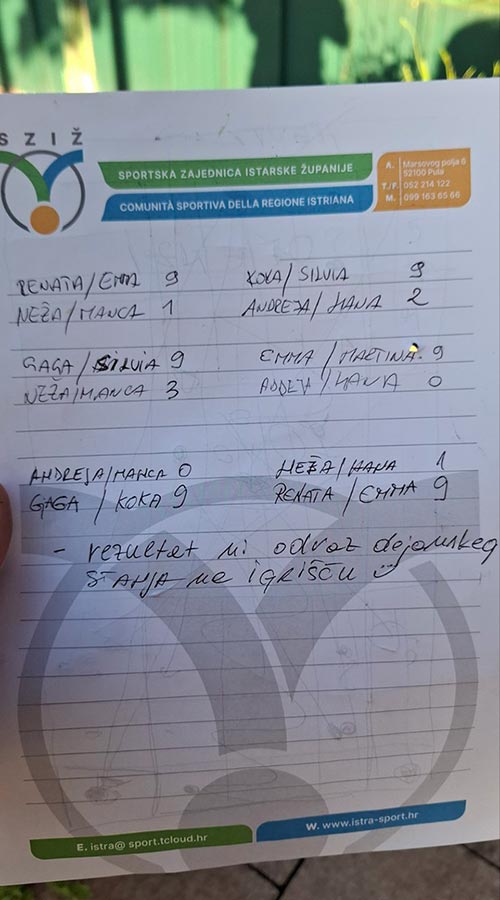 SZIŽ
SPORTSKA ZAJEDNICA ISTARSKE ŽUPANIJE
COMUNITÀ SPORTIVA DELLA REGIONE ISTRIANA
A. Marsovog polja 6
52100 Pula
T./F. 052 214 122
M. 099 163 65 66
RENATA/EMMA 9 KOKA/SILVIA 9
NEŽA/MANCA 1 ANDREJA/HANA 2
GAGA/SILVIA 9 EMMA/MARTINA 9
NEŽA/MANCA 3 /HANA 0
ANDREJA/MANCA 0 NEŽA/HANA 1
GAGA/KOKA 9 RENATA/EMMA 9
- rezultat ni odraz dejanskega
STANJA NA IGRIŠČU
E. istra@sport.tcloud.hr W. www.istra-sport.hr